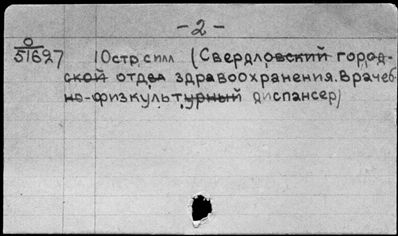 - 2 -
О
51627
10 стр. с илл (Свердловский город-
ской отдел здравоохранения. Врачеб-
но-физкультурный диспансер)